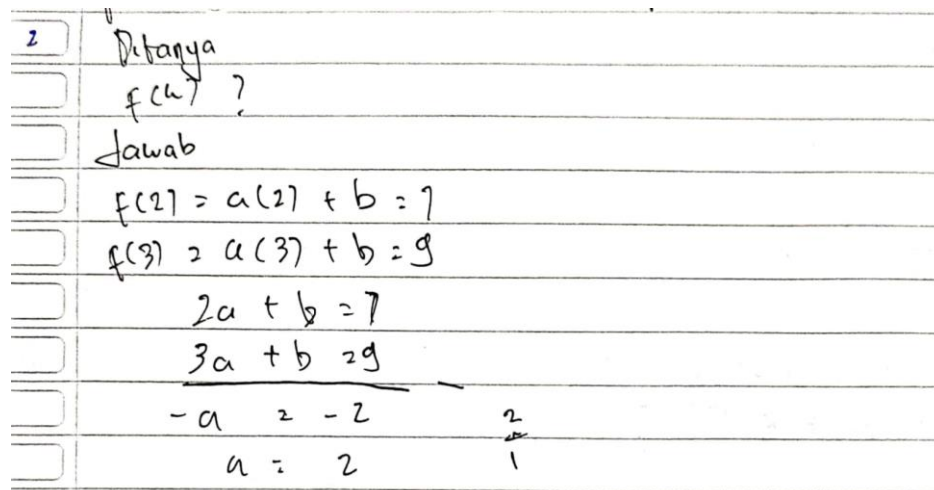 2
Ditanya
f(4) ?
Jawab
f(2) = a(2) + b = 7
f(3) = a(3) + b = 9
2a + b = 7
3a + b = 9 -
-a = -2
a = 2
2
1